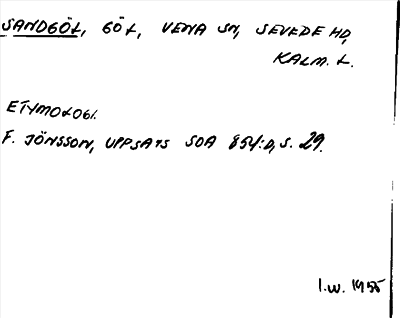 SANDGÖL, GÖL, VENA SN, SEVEDE HD,
KALM. L.
ETYMOLOGI.
F. JÖNSSON, UPPSATS SOA 854:D, S. 29.
I.W. 1955